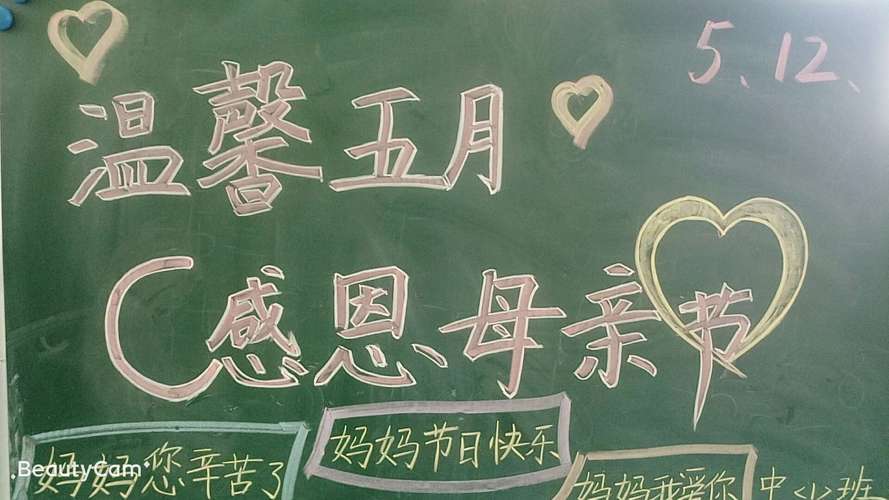 5.12.
温馨五月
感恩母亲节
妈妈节日快乐
妈妈您辛苦了
妈妈我爱你
中小班
BeautyCam